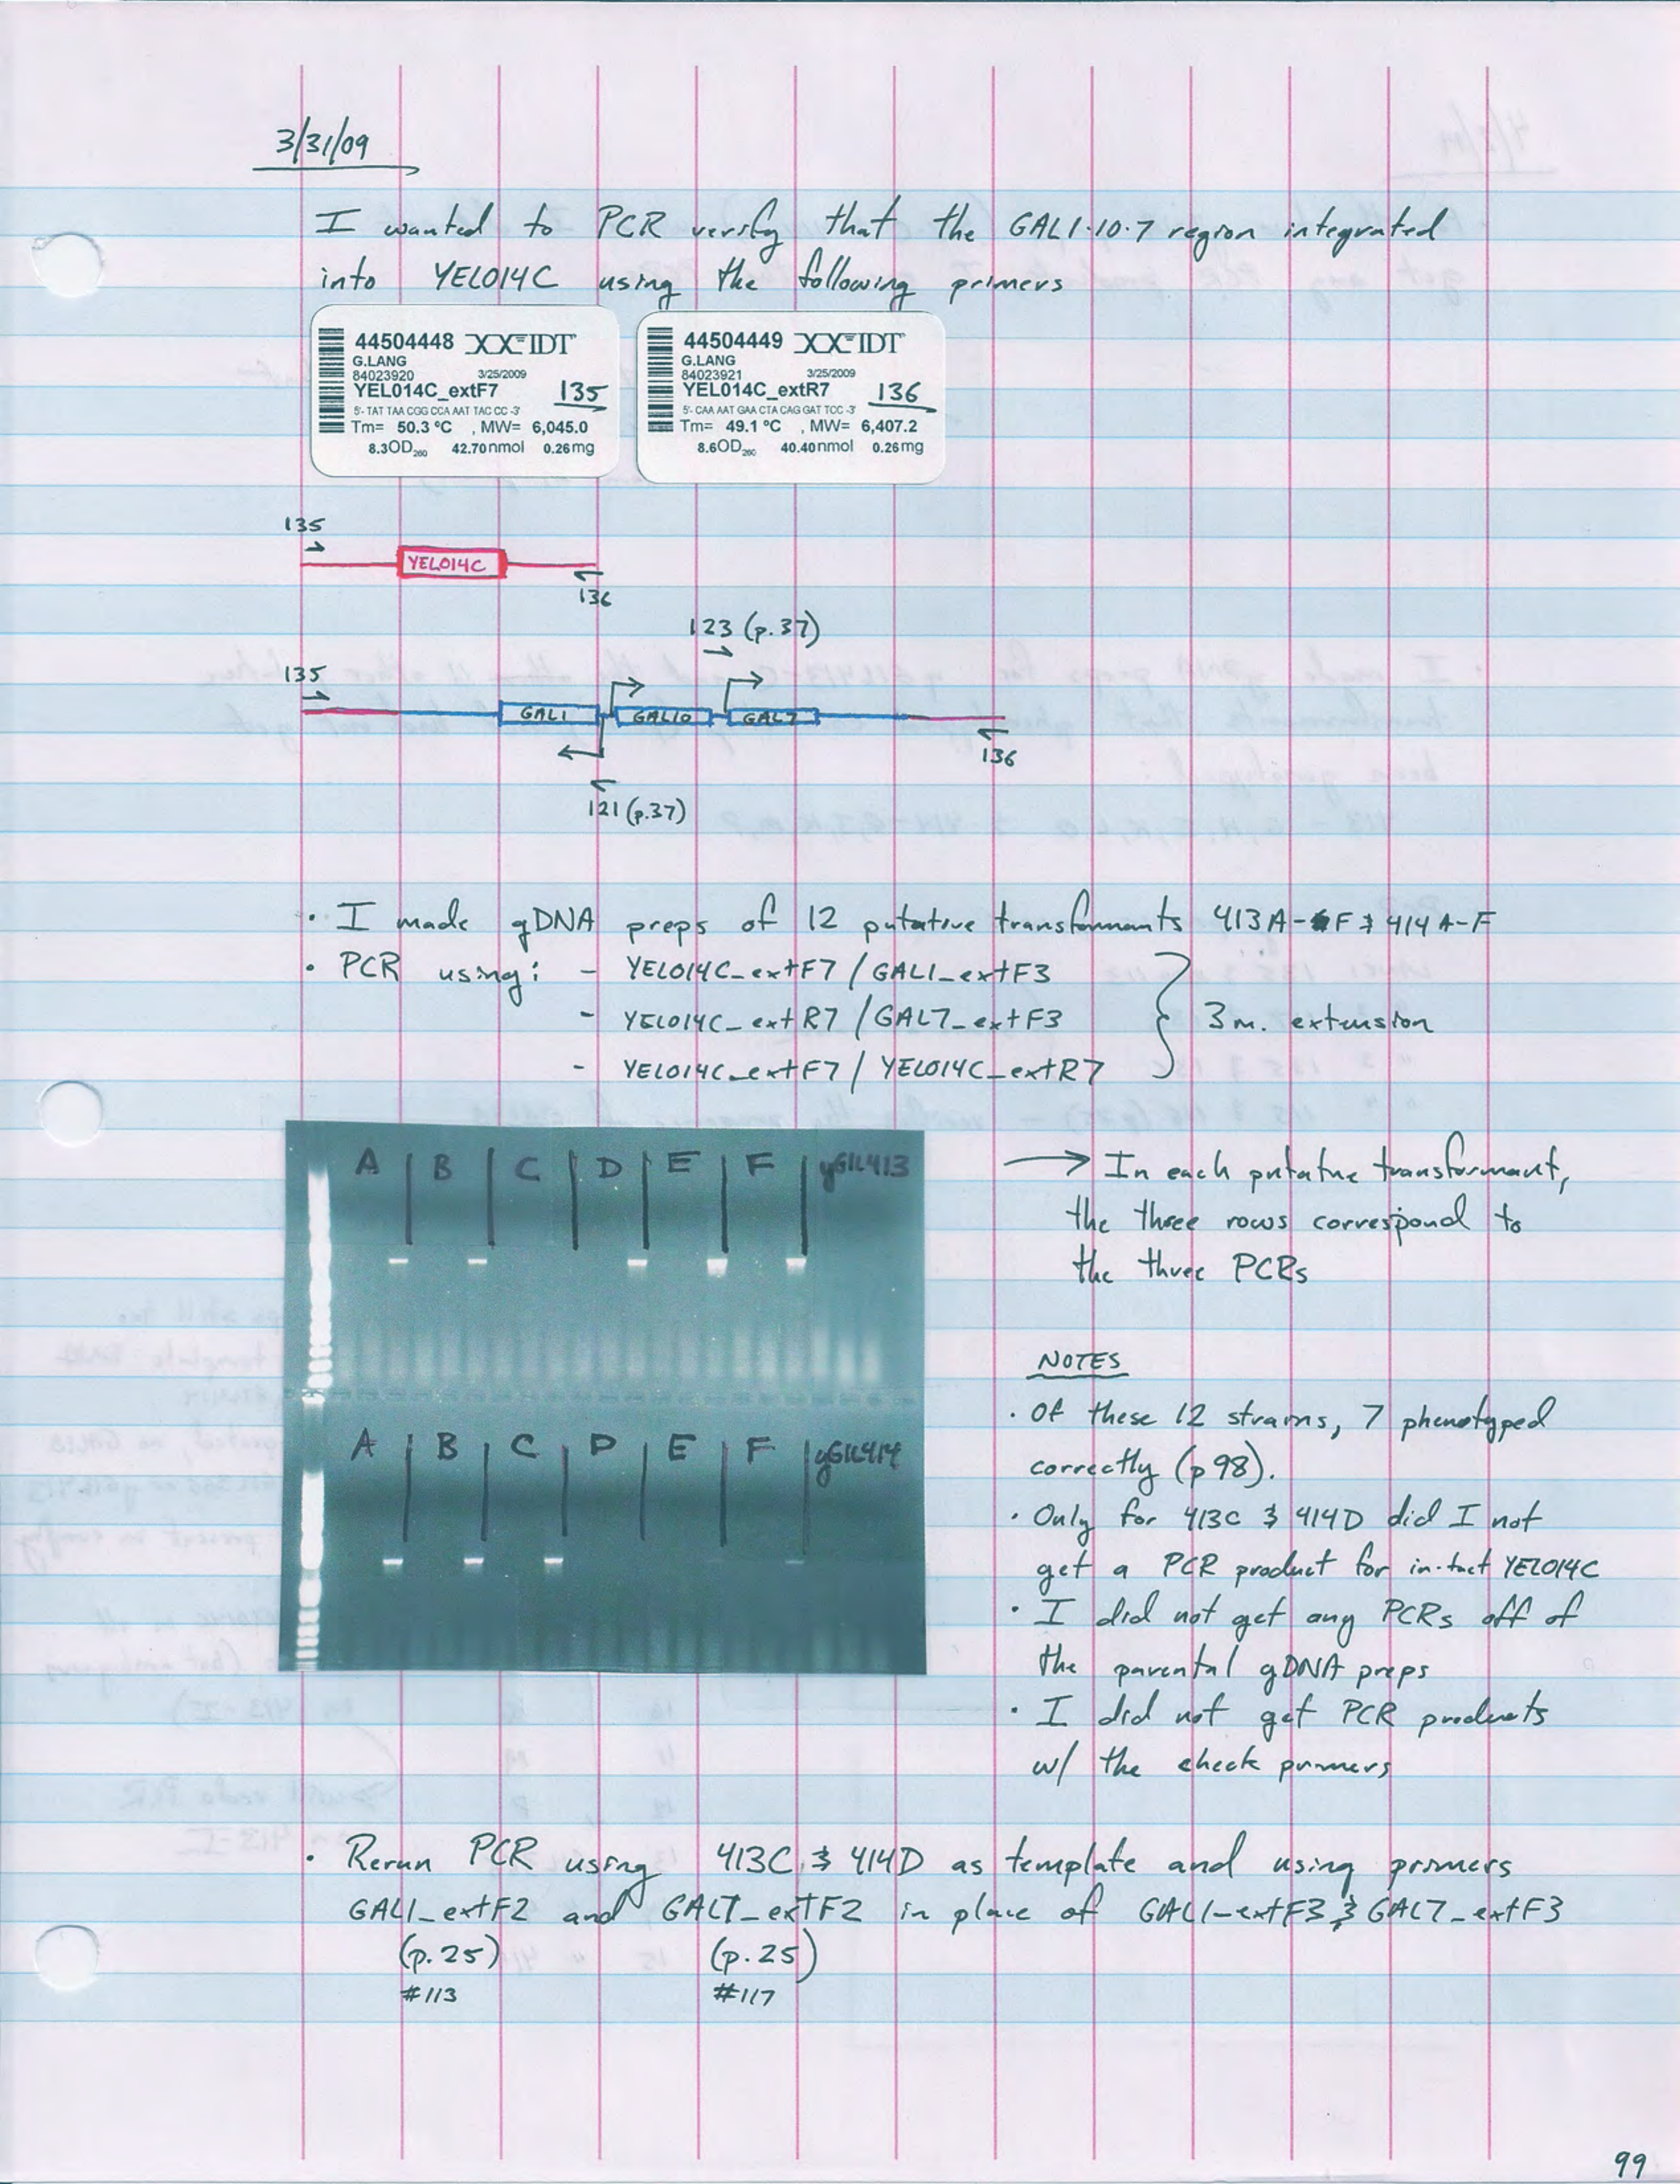 3/31/09
I wanted to PCR verify that the GAL1·10·7 region integrated
into YEL014C using the following primers
44504448 IDT
G.LANG
84023920 3/25/2009
YEL014C_extF7 135
5'- TAT TAA CGG CCA AAT TAC CC -3'
Tm= 50.3 ºC , MW= 6,045.0
8.3OD260 42.70nmol 0.26mg
44504449 IDT
G.LANG
84023921 3/25/2009
YEL014C_extR7 136
5'- CAA AAT GAA CTA CAG GAT TCC -3'
Tm= 49.1 ºC , MW= 6,407.2
8.6OD260 40.40nmol 0.26mg
135
YEL014C
136
123 (p.37)
135
GAL1 GAL10 GAL7
136
121 (p.37)
· I made gDNA preps of 12 putative transformants 413A-F & 414A-F
· PCR using: - YEL014C_extF7 / GAL1_extF3
- YEL014C_extR7 / GAL7_extF3
- YEL014C_extF7 / YEL014C_extR7
3m. extension
A B C D E F yGIL413
→ In each putative transformant,
the three rows correspond to
the three PCRs
A B C D E F yGIL414
NOTES
· Of these 12 strains, 7 phenotyped
correctly (p98).
· Only for 413C & 414D did I not
get a PCR product for in-tact YEL014C
· I did not get any PCRs off of
the parental gDNA preps
· I did not get PCR products
w/ the check primers
· Rerun PCR using 413C & 414D as template and using primers
GAL1_extF2 and GAL7_extF2 in place of GAL1-extF3 & GAL7_extF3
(p.25) (p.25)
#113 #117
99